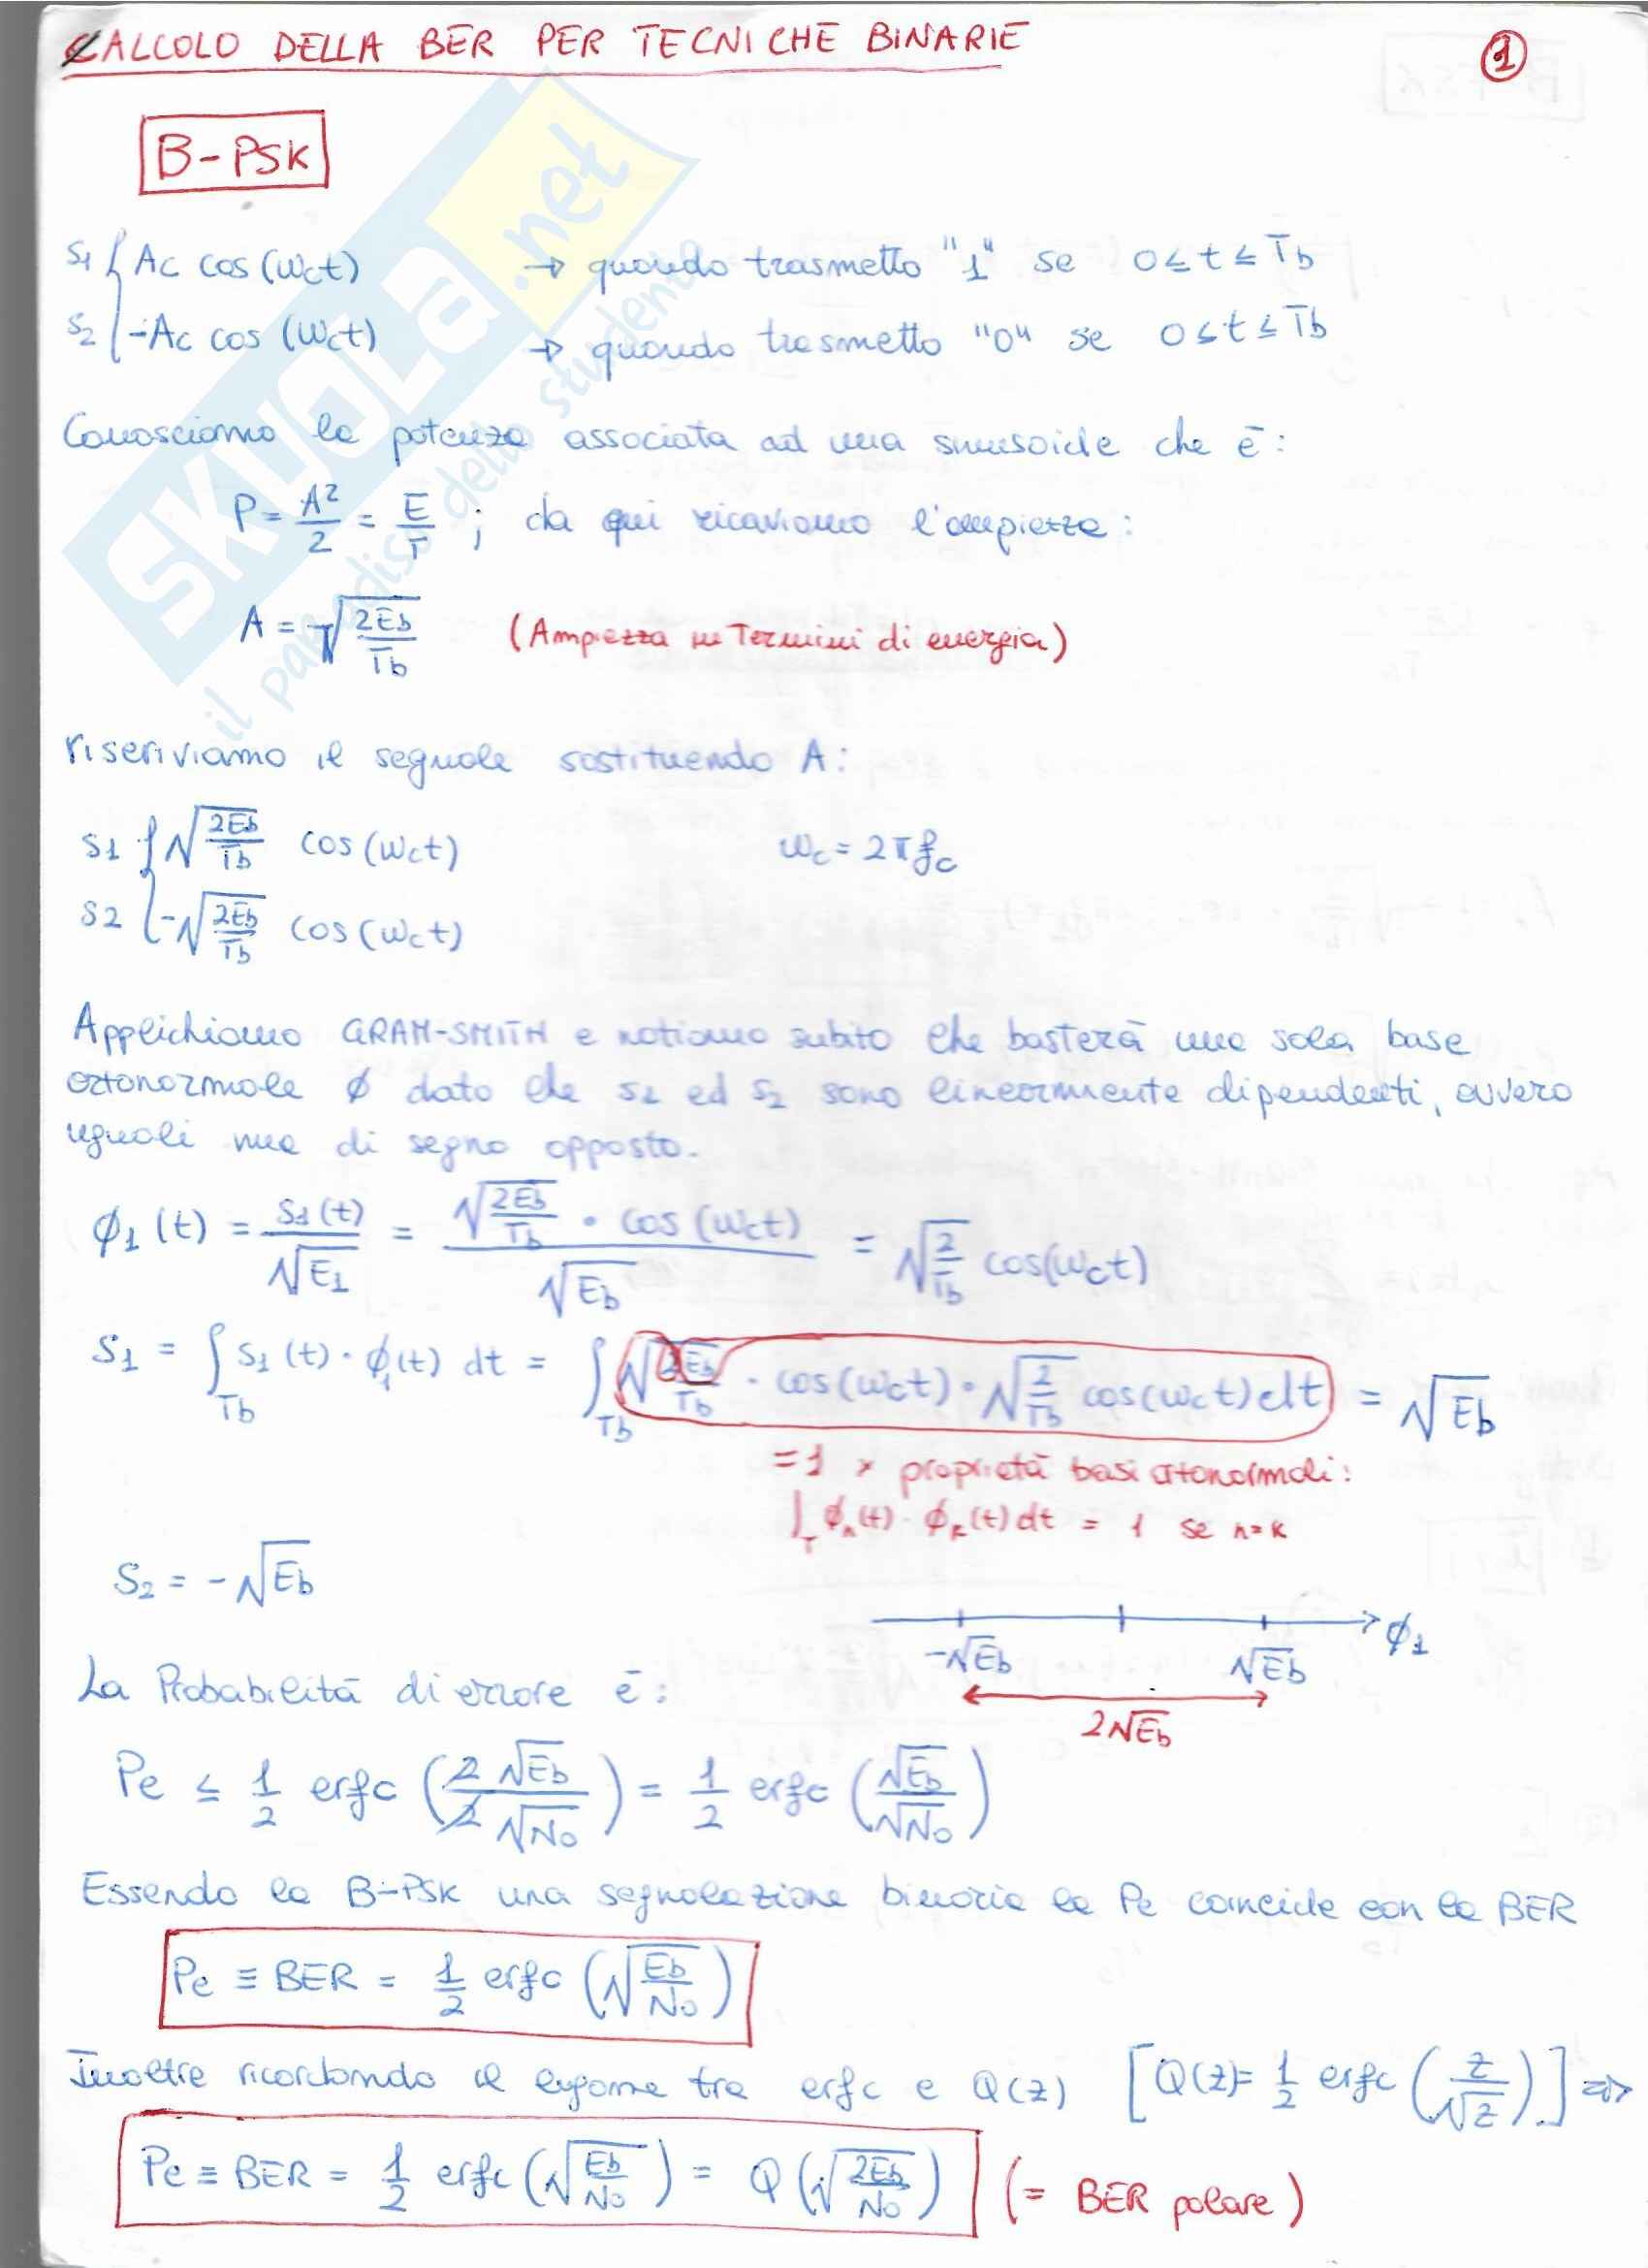 CALCOLO DELLA BER PER TECNICHE BINARIE
1
B-PSK
S1 { Ac cos(ωct) → quando trasmetto "1" se 0≤t≤Tb
S2 { -Ac cos(ωct) → quando trasmetto "0" se 0≤t≤Tb
Conosciamo la potenza associata ad una sinusoide che è:
P = A²/2 = E/T ; da qui ricaviamo l'ampiezza:
A = √(2Eb/Tb) (Ampiezza in Termini di energia)
riscriviamo il segnale sostituendo A:
S1 { √(2Eb/Tb) cos(ωct) ωc = 2πfc
S2 { -√(2Eb/Tb) cos(ωct)
Applichiamo GRAM-SMITH e notiamo subito che basterà una sola base
ortonormale ϕ dato che s1 ed s2 sono linearmente dipendenti, ovvero
uguali ma di segno opposto.
ϕ1(t) = S1(t)/√E1 = √(2Eb/Tb) · cos(ωct) / √Eb = √(2/Tb) cos(ωct)
S1 = ∫Tb S1(t)·ϕ1(t) dt = ∫Tb √(2Eb/Tb) · cos(ωct)·√(2/Tb) cos(ωct)dt = √Eb
=1 x proprietà basi ortonormali:
∫T ϕn(t)·ϕk(t)dt = 1 se n=k
S2 = -√Eb
-√Eb √Eb ϕ1
2√Eb
La Probabilità di errore è:
Pe ≤ 1/2 erfc (2√Eb / 2√No) = 1/2 erfc (√Eb/√No)
Essendo la B-PSK una segnalazione binaria la Pe coincide con la BER
Pe ≡ BER = 1/2 erfc (√(Eb/No))
Inoltre ricordando il legame tra erfc e Q(z) [Q(z)= 1/2 erfc (z/√2)] =>
Pe ≡ BER = 1/2 erfc(√(Eb/No)) = Q(√(2Eb/No)) (= BER polare)
SKUOLA.net
il paradiso dello studente